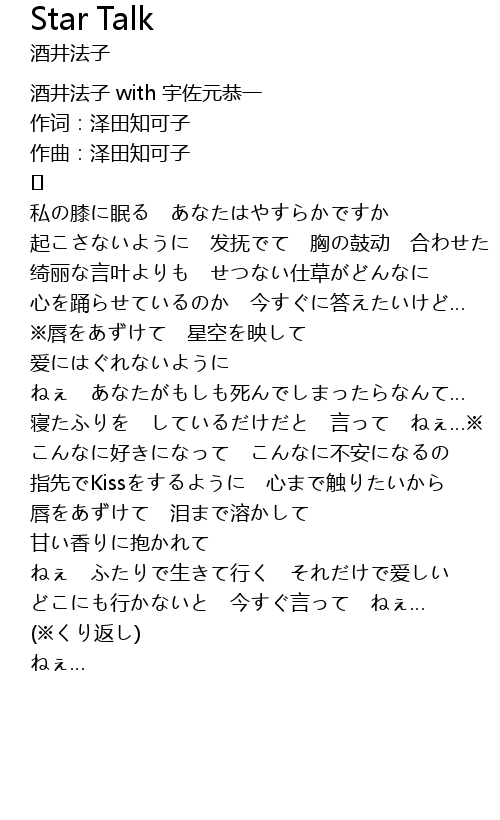 Star Talk
酒井法子
酒井法子 with 宇佐元恭一
作词：泽田知可子
作曲：泽田知可子
[]
私の膝に眠る　あなたはやすらかですか
起こさないように　发抚でて　胸の鼓动　合わせた
绮丽な言叶よりも　せつない仕草がどんなに
心を踊らせているのか　今すぐに答えたいけど...
※唇をあずけて　星空を映して
爱にはぐれないように
ねぇ　あなたがもしも死んでしまったらなんて...
寝たふりを　しているだけだと　言って　ねぇ...※
こんなに好きになって　こんなに不安になるの
指先でKissをするように　心まで触りたいから
唇をあずけて　泪まで溶かして
甘い香りに抱かれて
ねぇ　ふたりで生きて行く　それだけで爱しい
どこにも行かないと　今すぐ言って　ねぇ...
(※くり返し)
ねぇ...